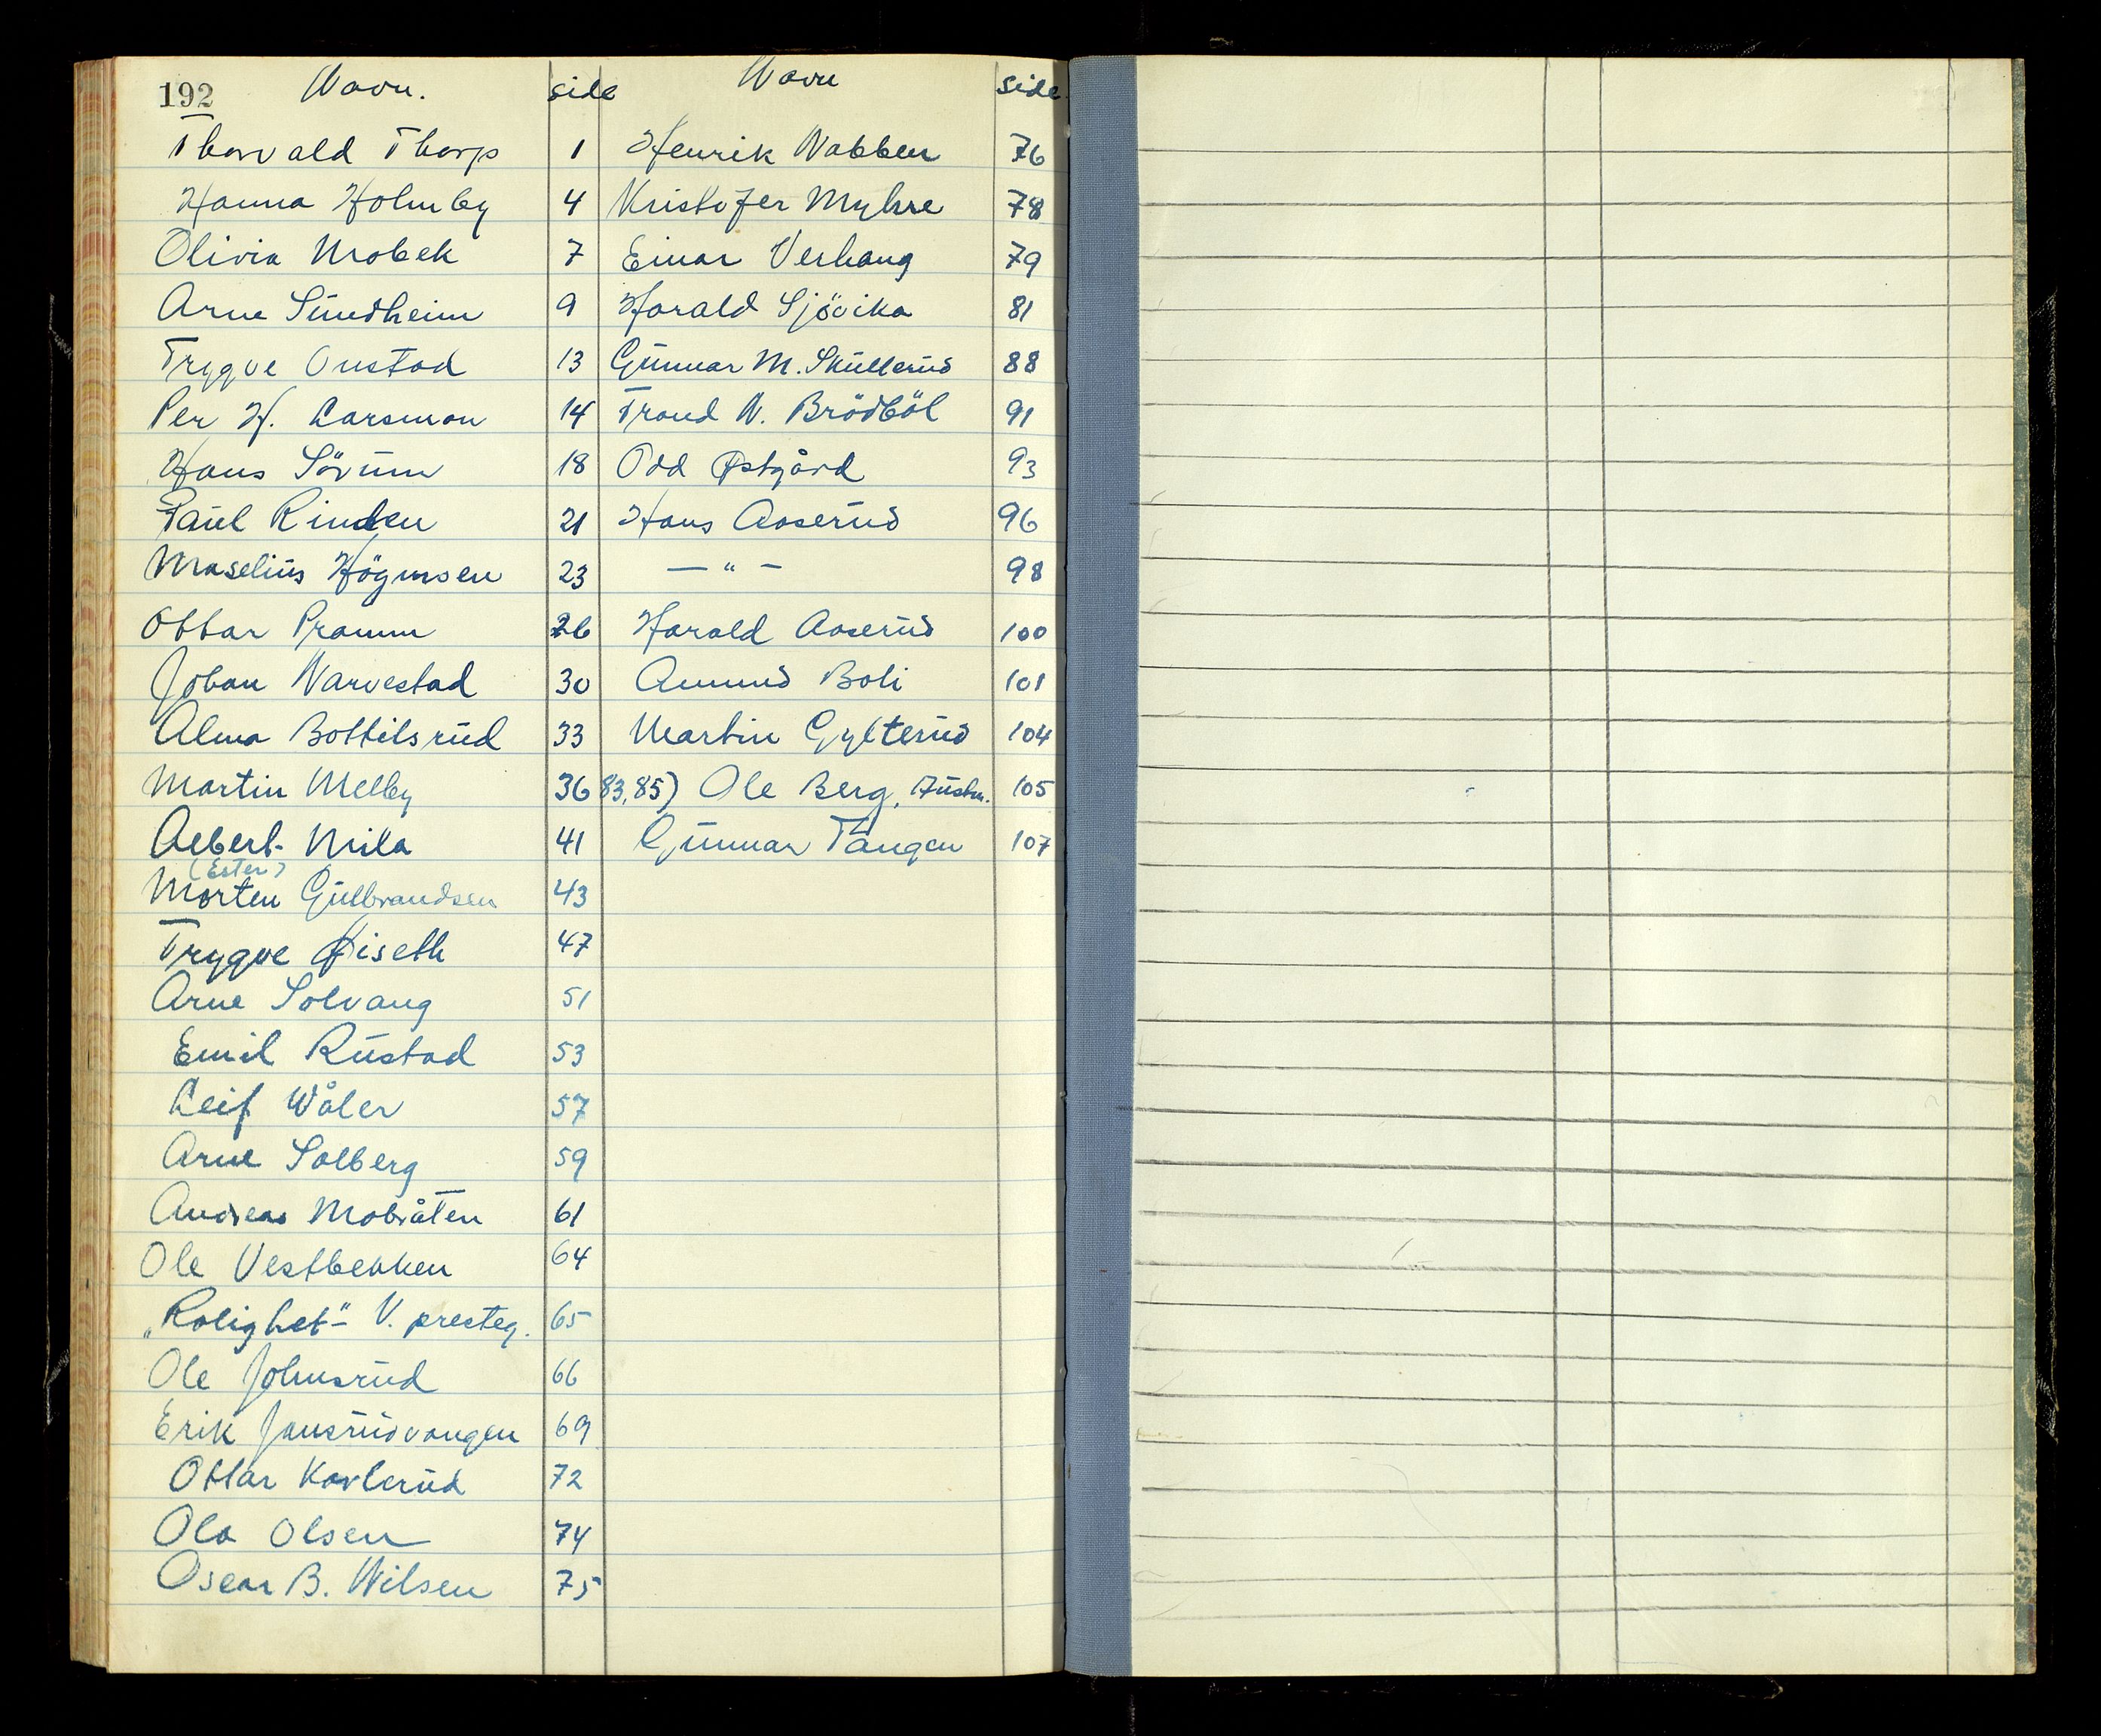 192 Navn. side Navn side
Thorvald Thorp 1 Henrik Nabben 76
Hanna Holmby 4 Kristofer Myhre 78
Olivia Mobek 7 Einar Verhaug 79
Arne Sundheim 9 Harald Sjövika 81
Trygve Onstad 13 Gunnar M. Skullerud 88
Per H. Larsmon 14 Trond N. Brödböl 91
Hans Sörum 18 Odd Østgård 93
Paul Rinden 21 Hans Aaserud 96
Maselius Högmsen 23 — " — 98
Ottar Pramm 26 Harald Aaserud 100
Johan Narvestad 30 Amund Boli 101
Alma Bottilsrud 33 Martin Gylterud 104
Martin Melby 36 83, 85) Ole Berg, 105
Albert Mila 41 Gunnar Tangen 107
(Ester)
Morten Gulbrandsen 43
Trygve Øiseth 47
Arne Solvang 51
Emil Rustad 53
Leif Wåler 57
Arne Solberg 59
Andreas Mobråten 61
Ole Vestbekken 64
„Rolighet" V. presteg. 65
Ole Johnsrud 66
Erik Jansrudvangen 69
Ottar Kavlerud 72
Ola Olsen 74
Oscar B. Nilsen 75